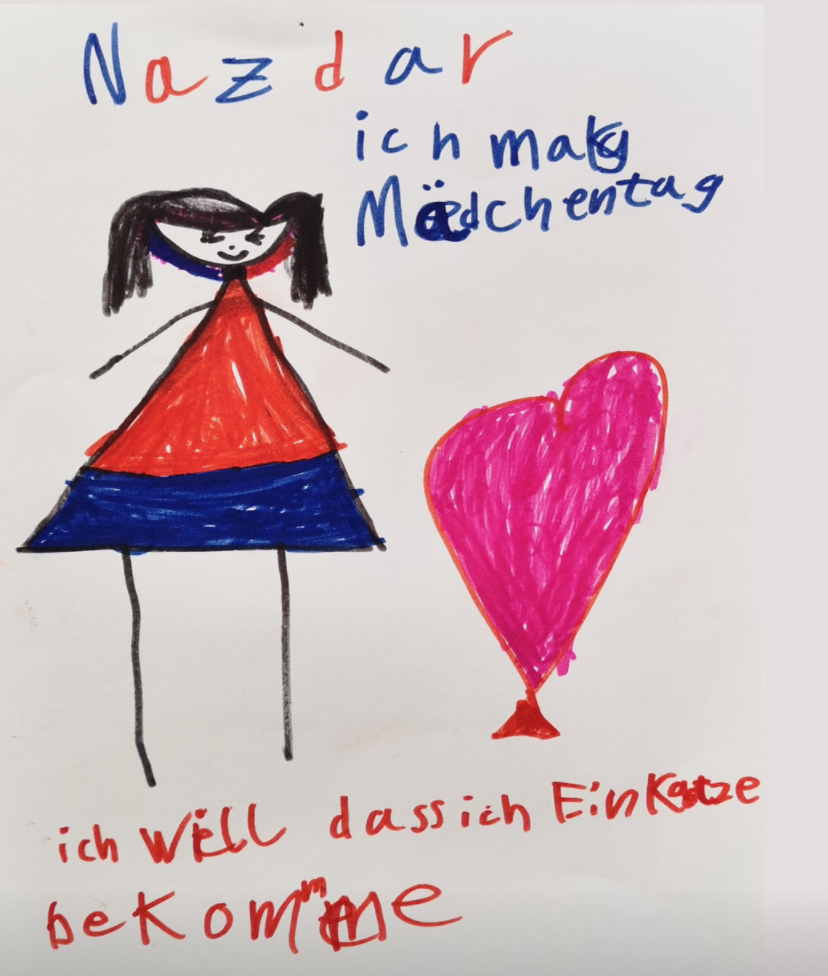 Nazdar
ich mag
Mädchentag
ich will dass ich Ein Katze
bekomme